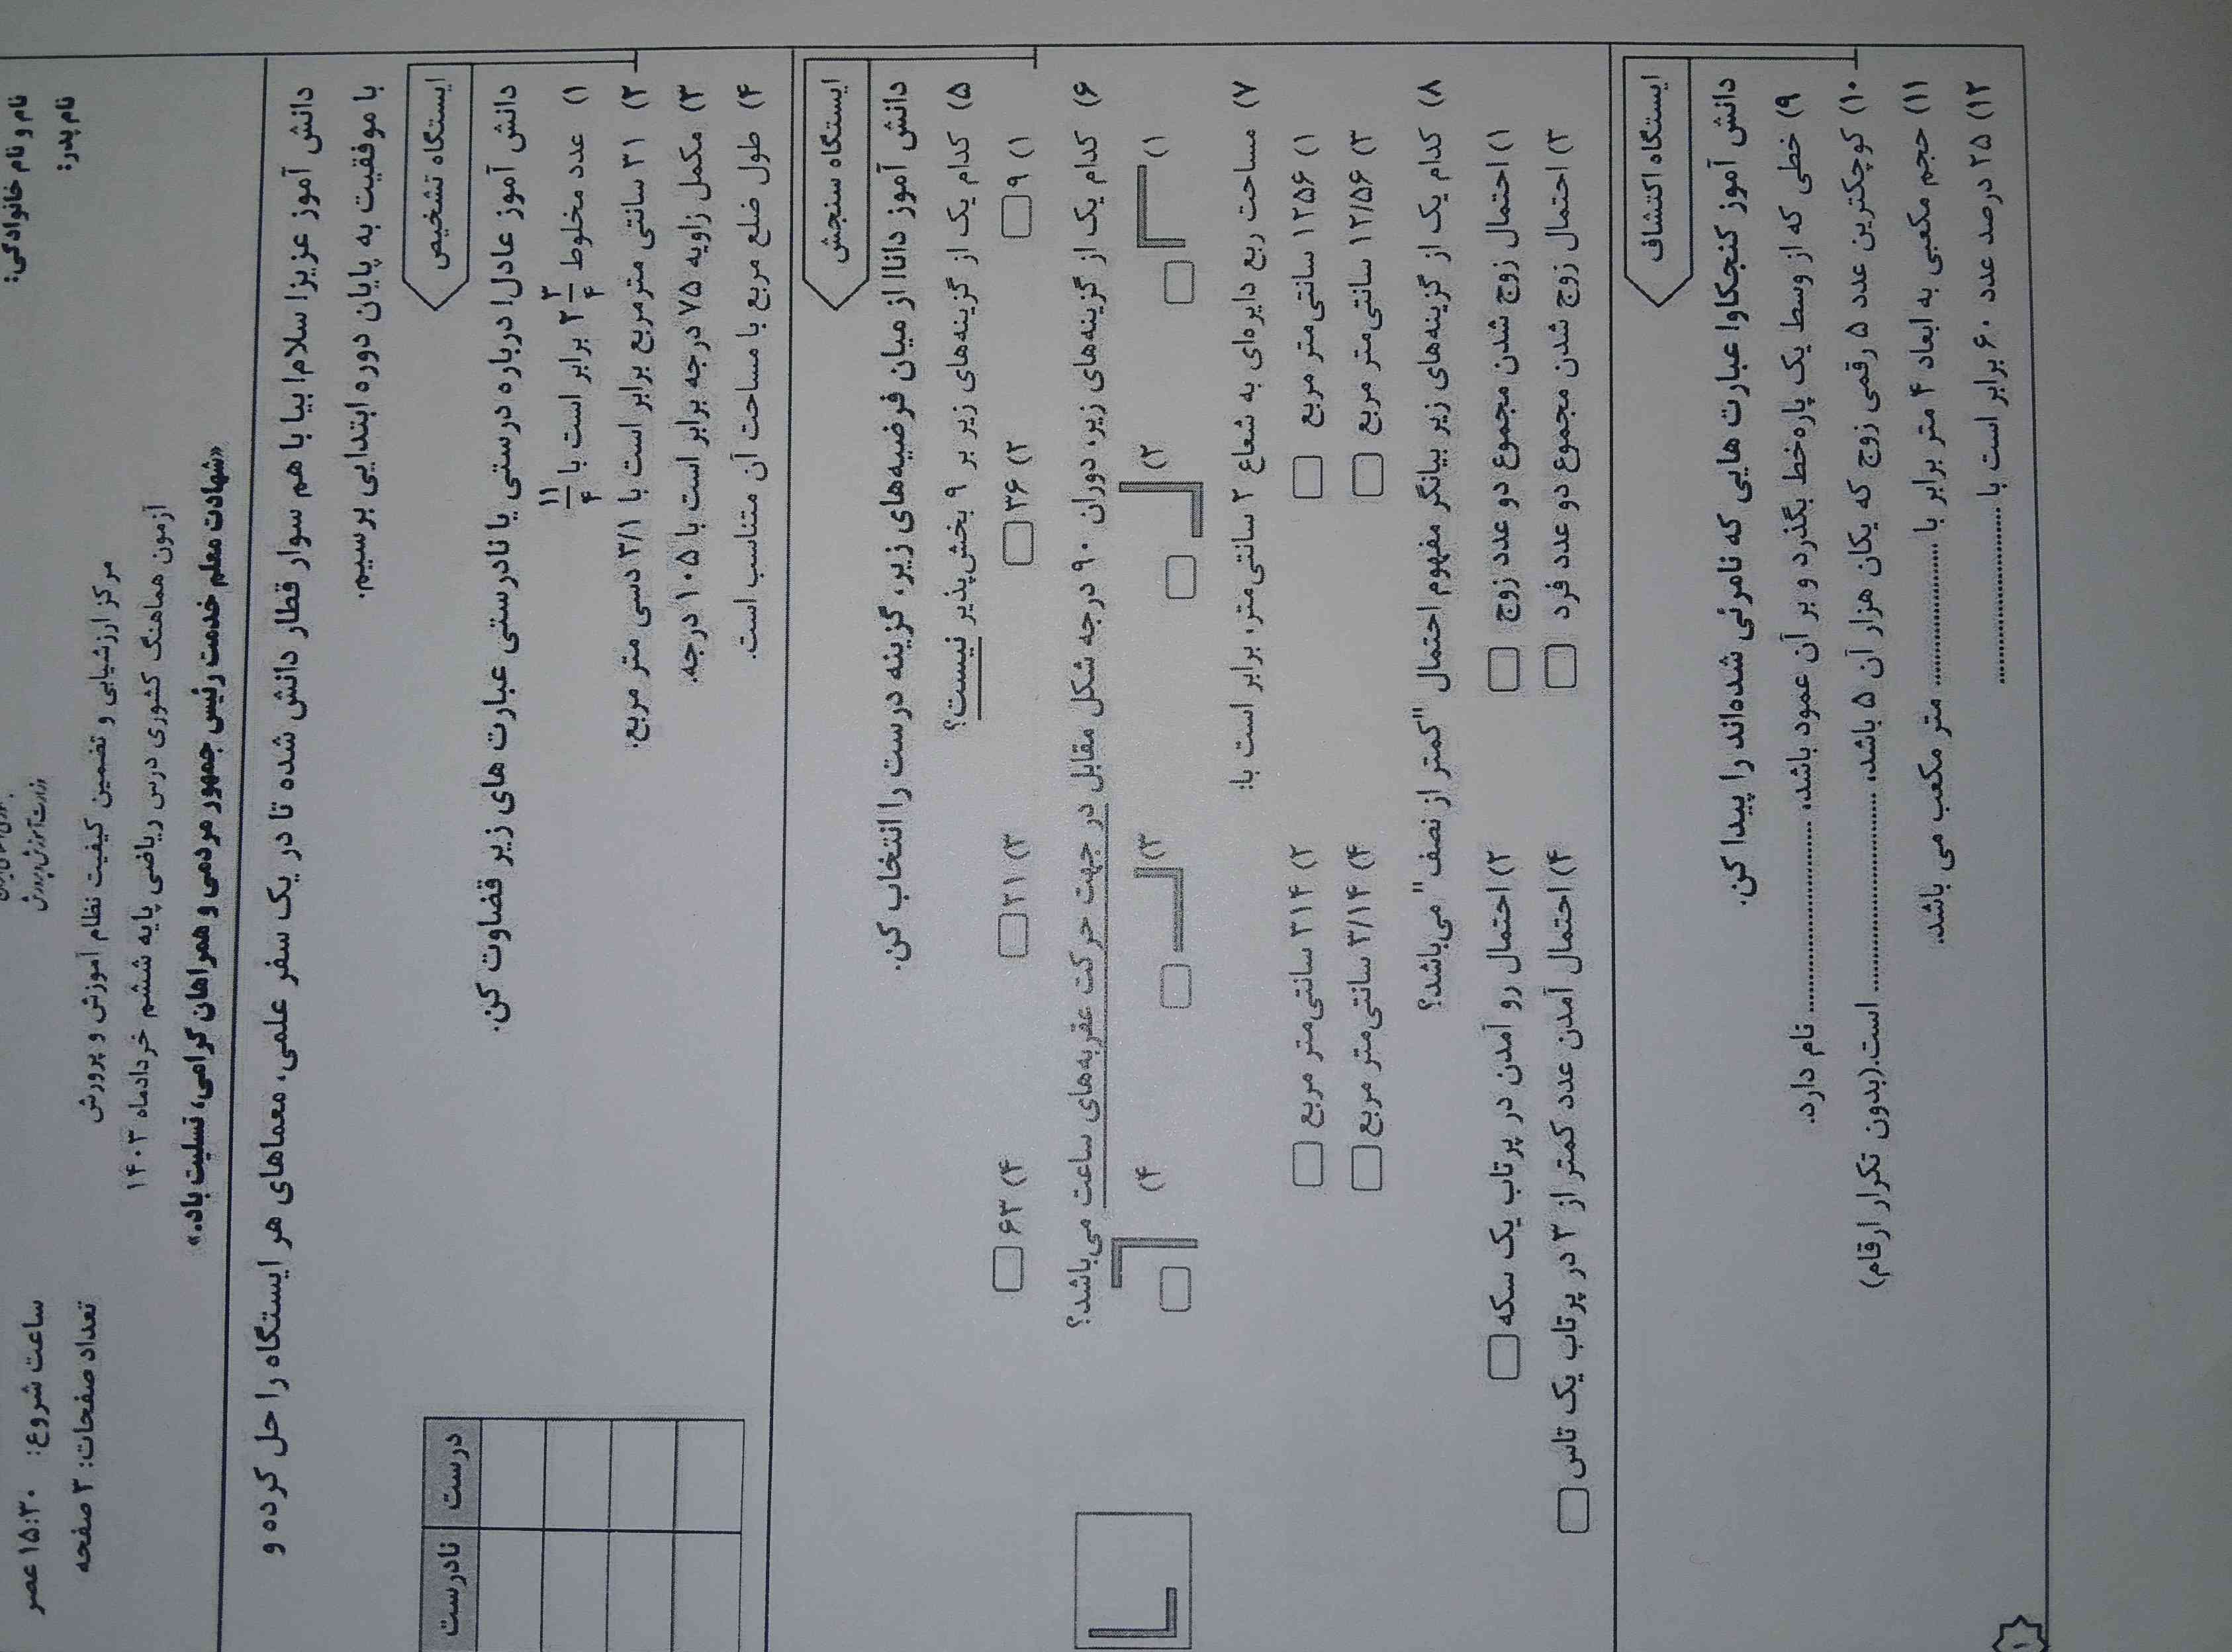 نام و نام خانوادگی:
نام پدر:
وزارت آموزش و پرورش
مرکز ارزشیابی و تضمین کیفیت نظام آموزش و پرورش
آزمون هماهنگ کشوری درس ریاضی پایه ششم خردادماه ۱۴۰۳
«شهادت معلم خدمت رئیس جمهور مردمی و همراهان گرامی، تسلیت باد.»
ساعت شروع: ۱۵:۳۰ عصر
تعداد صفحات: ۳ صفحه
دانش آموز عزیز! سلام! بیا با هم سوار قطار دانش شده تا در یک سفر علمی، معماهای هر ایستگاه را حل کرده و
با موفقیت به پایان دوره ابتدایی برسیم.
ایستگاه تشخیص
دانش آموز عادل! درباره درستی یا نادرستی عبارت های زیر قضاوت کن.
درست نادرست
۱) عدد مخلوط ۲ ۳/۴ برابر است با ۱۱/۴
۲) ۳۱ سانتی مترمربع برابر است با ۳/۱ دسی متر مربع.
۳) مکمل زاویه ۷۵ درجه برابر است با ۱۰۵ درجه.
۴) طول ضلع مربع با مساحت آن متناسب است.
ایستگاه سنجش
دانش آموز دانا! از میان فرضیه‌های زیر، گزینه درست را انتخاب کن.
۵) کدام یک از گزینه‌های زیر بر ۹ بخش‌پذیر نیست؟
۱) ۹ ۲) ۳۶ ۳) ۲۱ ۴) ۶۳
۶) کدام یک از گزینه‌های زیر، دوران ۹۰ درجه شکل مقابل در جهت حرکت عقربه‌های ساعت می‌باشد؟
۱) ۲) ۳) ۴)
۷) مساحت ربع دایره‌ای به شعاع ۲ سانتی‌متر، برابر است با:
۱) ۱۲۵۶ سانتی‌متر مربع ۲) ۳۱۴ سانتی‌متر مربع
۳) ۱۲/۵۶ سانتی‌متر مربع ۴) ۳/۱۴ سانتی‌متر مربع
۸) کدام یک از گزینه‌های زیر بیانگر مفهوم احتمال "کمتر از نصف" می‌باشد؟
۱) احتمال زوج شدن مجموع دو عدد زوج ۲) احتمال رو آمدن در پرتاب یک سکه
۳) احتمال زوج شدن مجموع دو عدد فرد ۴) احتمال آمدن عدد کمتر از ۳ در پرتاب یک تاس
ایستگاه اکتشاف
دانش آموز کنجکاو! عبارت هایی که نامرئی شده‌اند را پیدا کن.
۹) خطی که از وسط یک پاره‌خط بگذرد و بر آن عمود باشد، .................... نام دارد.
۱۰) کوچکترین عدد ۵ رقمی زوج که یکان هزار آن ۵ باشد، .................... است.(بدون تکرار ارقام)
۱۱) حجم مکعبی به ابعاد ۴ متر برابر با .................... متر مکعب می باشد.
۱۲) ۲۵ درصد عدد ۶۰ برابر است با ....................
۱